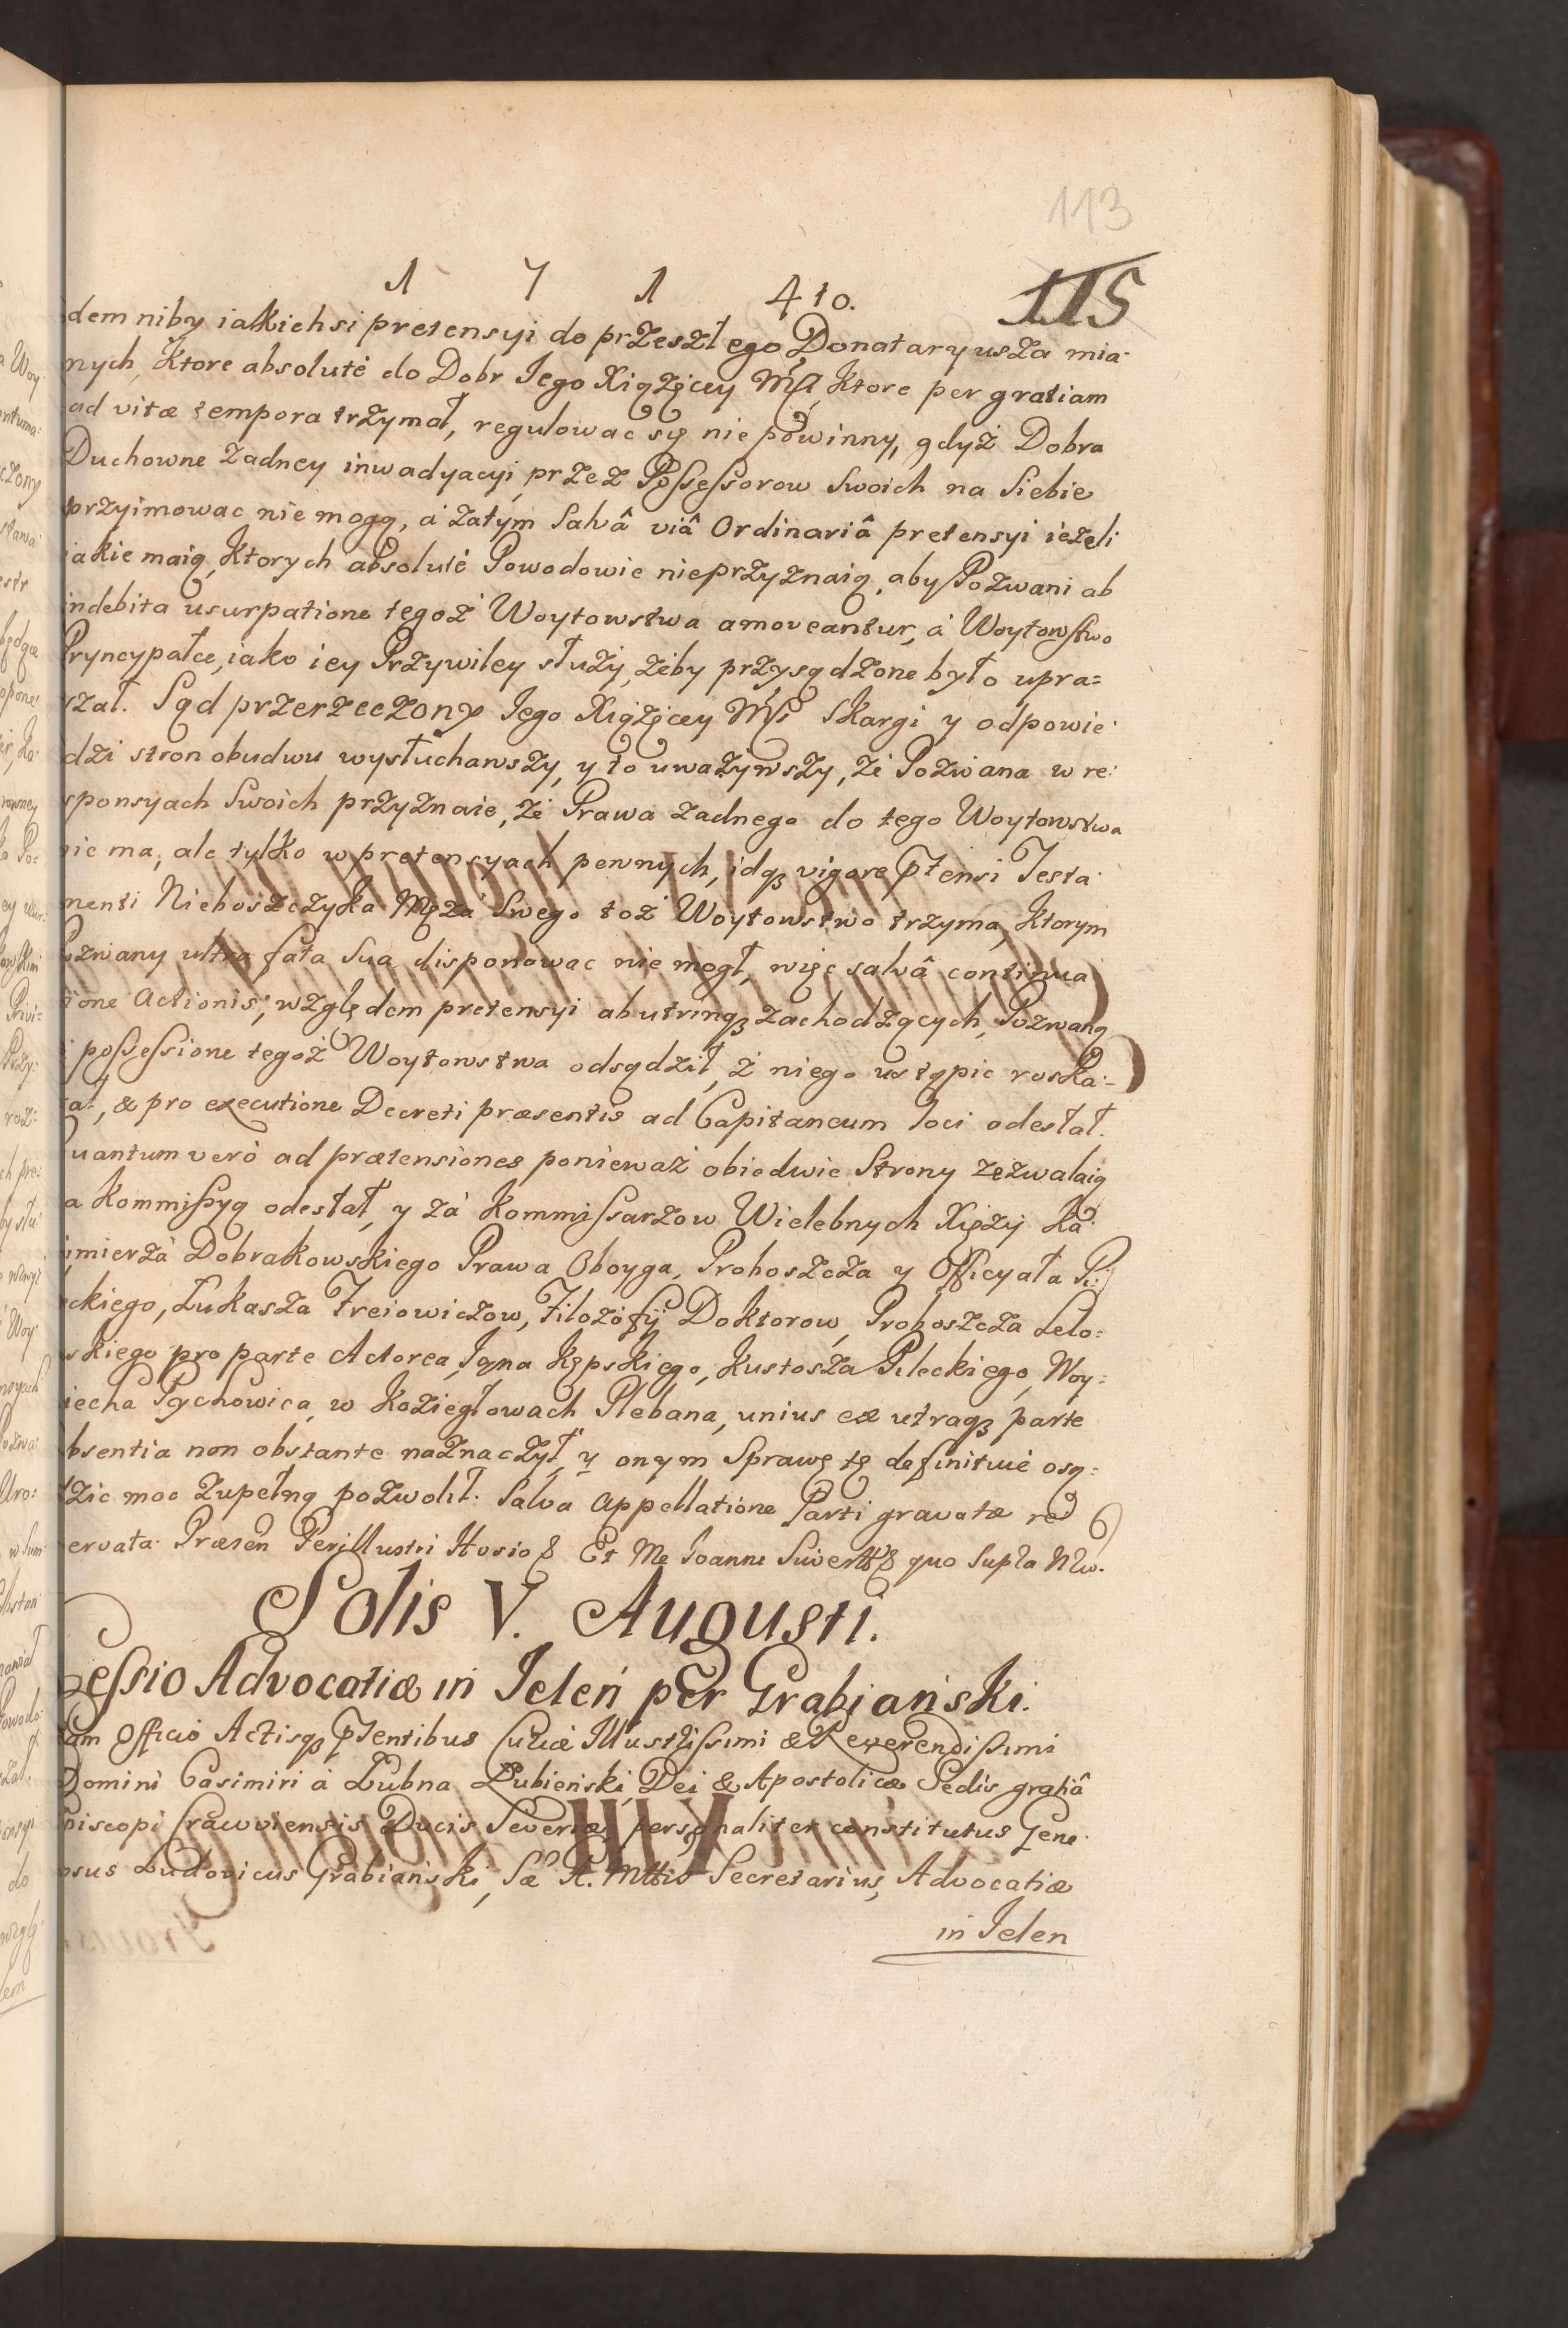 113
1 7 1 4to. 115
dem niby iakichsi pretensyi do przeszłego Donataryusza mia-
nych, Ktore absolutè do Dobr Iego Xiążęcey Mści, Ktore per gratiam
ad vitæ tempora trzymał, regulowac się nie powinny, gdyż Dobra
Duchowne żadney inwadyacyi przez Possessorow Swoich na Siebie
przyimowac nie mogą, á zatym Salvâ viâ Ordinariâ pretensyi ieżeli
iakie maią, Ktorych absolutè Powodowie nieprzyznaią, aby Pozwani ab
indebita usurpatione tegoż Woytowstwa amoveantur, á Woytowstwo
Pryncypałce, iako iey Przywiley służy, żeby przysądzone było upra=
szał. Sąd przerzeczony Iego Xiążęcey Mści Skargi y odpowie-
dzi stron obudwu wysłuchawszy, y to uważywszy, że Pozwana w re-
sponsyach Swoich przyznaie, że Prawa żadnego do tego Woytowstwa
nie ma, ale tylko w pretensyach pewnych, idq3 vigore ptensi Testa-
menti Nieboszczyka Męża Swego toż Woytowstwo trzyma, Ktorym
Pozwany ultra fata Sua disponowac nie mogł, więc salvâ continua
tione Actionis, względem pretensyi ab utrinq3 zachodzących, Pozwaną
possessione tegoż Woytowstwa odsądził, z niego ustąpic roska-
zał, & pro executione Decreti præsentis ad Capitaneum loci odesłał.
uantum verò ad prætensiones ponieważ obiedwie Strony zezwalaią
a Kommissyą odesłał, y zá Kommissarzow Wielebnych Xięży Ka-
zimierzá Dobrakowskiego Prawa Oboyga, Proboszcza y Officyała Pi-
ckiego, Łukasza Freiowiczow, Filozofij Doktorow, Proboszcza Lelo=
wskiego pro parte Actorea, Igna Kępskiego, Kustosza Pileckiego, Woy=
iecha Pychowica, w Koziegłowach Plebana, unius ex utraq3 parte
absentia non obstante naznaczył, y onym Sprawę tę definitivè osą=
dzic moc zupełną pozwolił. Salva Appellatione Parti gravatæ re
servata. Præsen Perillustri Hosio & Et Me Ioanne quo Supra
Solis V. Augusti.
Cessio Advocatiæ in Ieleń per Grabiański.
am Officio Actisq3 ptentibus Curiæ Illustrissimi & Reverendissimi
Domini Casimiri à Łubna Łubieński, Dei & Apostolicæ Sedis gratiâ
Episcopi Cracoviensis Ducis Severiæ, personaliter constitutus Gene-
rosus Ludovicus Grabiański, Sæ R. Mttis Secretarius, Advocatiæ
in Ielen